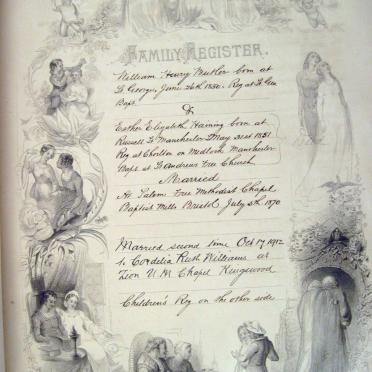 FAMILY REGISTER.
William Henry Butler born at
St Georges, June 26th 1850. Reg at St Geo
Bap.
&
Esther Elizabeth Haming born at
Russell St Manchester May 21st 1851
Reg at Chorlton on Medlock Manchester
Baps at St Andrews Free Church
Married
At Salem Free Methodist Chapel
Baptist Mills Bristol July 5th 1870
Married second time Oct 17 1912
to Cordelia Ruth Williams at
Zion U.M Chapel Kingswood
Children's Reg on the other side